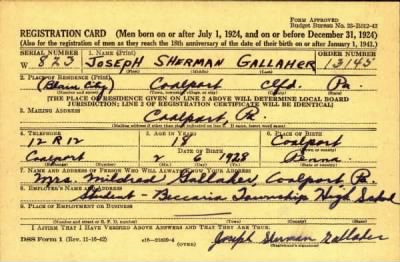 Form Approved
Budget Bureau No.
REGISTRATION CARD (Men born on or after July 1, 1924, and on or before December 31, 1924)
(Also for the registration of men as they reach the 18th anniversary of the date of their birth on or after January 1, 1943.)
SERIAL NUMBER 1. NAME (Print) ORDER NUMBER
W 823 JOSEPH SHERMAN GALLAHER 13145
(First) (Middle) (Last)
2. PLACE OF RESIDENCE (Print)
Coalport Clfd. Pa.
[THE PLACE OF RESIDENCE GIVEN ON LINE 2 ABOVE WILL DETERMINE LOCAL BOARD
JURISDICTION; LINE 2 OF REGISTRATION CERTIFICATE WILL BE IDENTICAL]
3. MAILING ADDRESS
Coalport, Pa.
4. TELEPHONE 5. AGE IN YEARS 6. PLACE OF BIRTH
12 R 12 18 Coalport
DATE OF BIRTH
Coalport 2 6 1928 Penna.
7. NAME AND ADDRESS OF PERSON WHO WILL ALWAYS KNOW YOUR ADDRESS
Mrs. Mildred Gallaher, Coalport Pa.
8. EMPLOYER'S NAME AND ADDRESS
Student - Beccaria Township High School
9. PLACE OF EMPLOYMENT OR BUSINESS
I AFFIRM THAT I HAVE VERIFIED ABOVE ANSWERS AND THAT THEY ARE TRUE.
DSS Form 1 (Rev. 11-16-42) (OVER) Joseph Sherman Gallaher